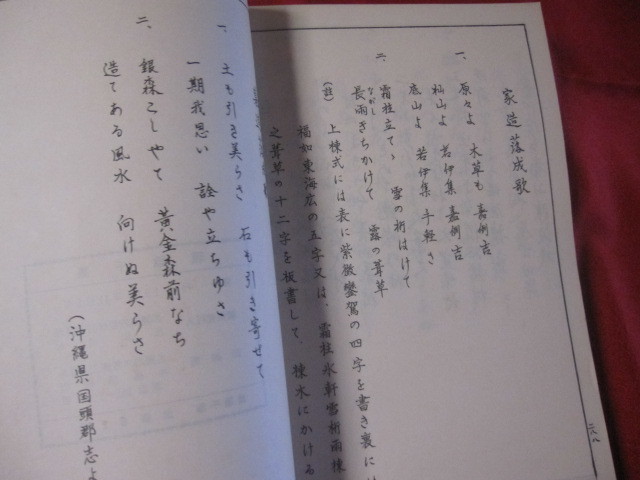 家造落成歌
一、原々よ 木草も 嘉例吉
杣山よ 若伊集 嘉例吉
底山よ 若伊集 手軽さ
二、霜柱立てゝ 雪の桁はけて
長雨きちかけて 露の葺草
ながし
(註) 上棟式には表に紫微鑾駕の四字を書き裏には
福如東海広の五字又は、霜柱氷軒雪桁雨棟
之葺草の十二字を板書して、棟木にかける
一、土も引き美らさ 石も引き寄せて
一期我思い 詮や立ちゆさ
二、銀森こしやて 黄金森前なち
造てある風水 向けぬ美らさ
(沖縄県国頭郡志よ
二八